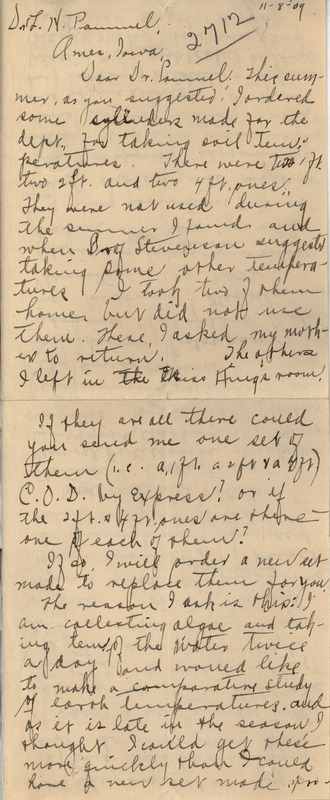 11-8-09
Dr. L. H. Pammel,
2712
Ames, Iowa,
Dear Dr. Pammel: This sum-
mer, as you suggested, I ordered
some cylinders made for the
dept. for taking soil tem-
peratures. There were two 1 ft.
two 2 ft. and two 4 ft. ones.
They were not used during
the summer I found and
when Prof Stevenson suggested
taking some other tempera-
tures I took two of them
home, but did not use
them. These, I asked my moth-
er to return. The others
I left in the Miss King's room.
If they are all there could
you send me one set of
them (i.e. a 1 ft. a 2 ft & a 4 ft)
C.O.D. by Express? or if
the 2 ft. & 4 ft. ones are there
one of each of them?
If so, I will order a new set
made to replace them for you.
The reason I ask is this: I
am collecting algae and tak-
ing tem. of the water twice
a day and would like
to make a comparative study
of earth temperatures. and
as it is late in the season I
thought I could get these
more quickly than I could
have a new set made. pro-